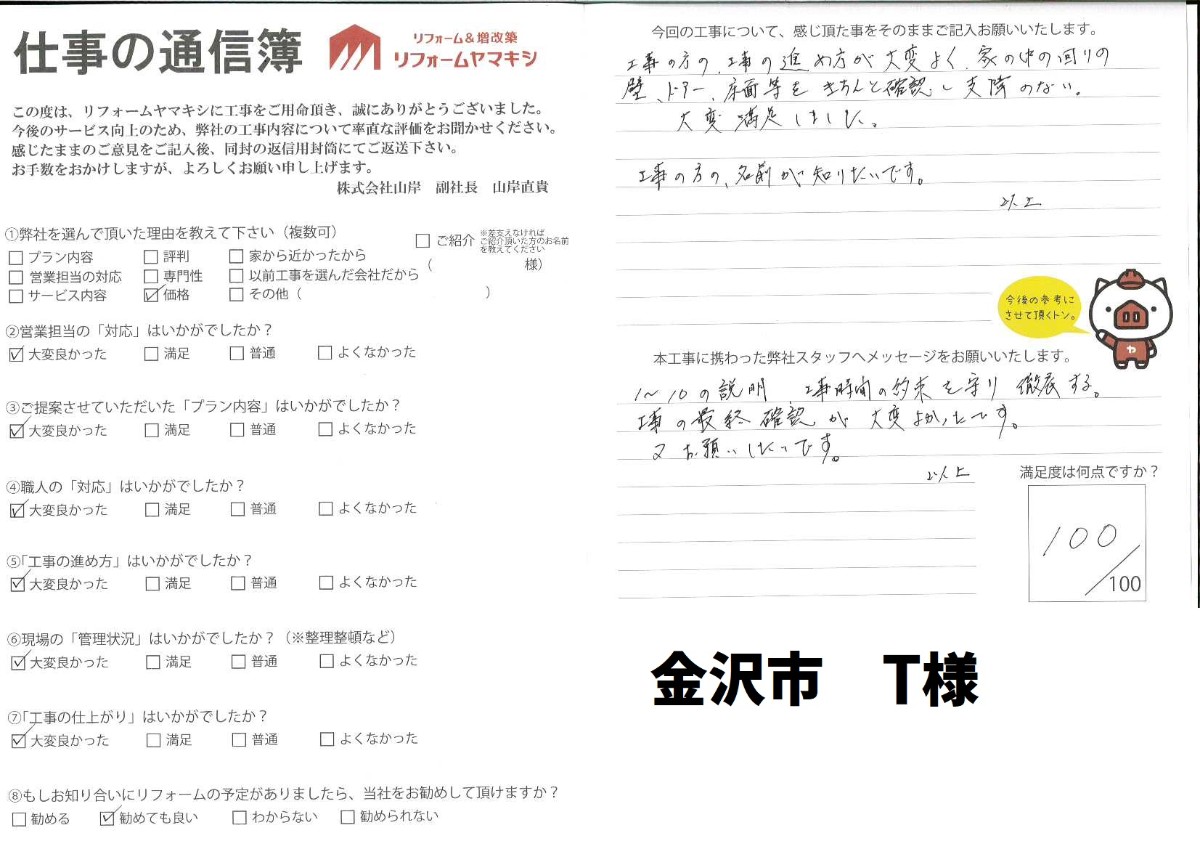 仕事の通信簿
リフォーム&増改築
リフォームヤマキシ
この度は、リフォームヤマキシに工事をご用命頂き、誠にありがとうございました。
今後のサービス向上のため、弊社の工事内容について率直な評価をお聞かせください。
感じたままのご意見をご記入後、同封の返信用封筒にてご返送下さい。
お手数をおかけしますが、よろしくお願い申し上げます。
株式会社山岸 副社長 山岸直貴
①弊社を選んで頂いた理由を教えて下さい（複数可）
□プラン内容 □評判 □家から近かったから
□営業担当の対応 □専門性 □以前工事を選んだ会社だから
□サービス内容 ☑価格 □その他（ ）
□ご紹介 ※差支えなければ
ご紹介頂いた方のお名前
を教えてください
（ 様）
②営業担当の「対応」はいかがでしたか？
☑大変良かった □満足 □普通 □よくなかった
③ご提案させていただいた「プラン内容」はいかがでしたか？
☑大変良かった □満足 □普通 □よくなかった
④職人の「対応」はいかがでしたか？
☑大変良かった □満足 □普通 □よくなかった
⑤「工事の進め方」はいかがでしたか？
☑大変良かった □満足 □普通 □よくなかった
⑥現場の「管理状況」はいかがでしたか？（※整理整頓など）
☑大変良かった □満足 □普通 □よくなかった
⑦「工事の仕上がり」はいかがでしたか？
☑大変良かった □満足 □普通 □よくなかった
⑧もしお知り合いにリフォームの予定がありましたら、当社をお勧めして頂けますか？
□勧める ☑勧めても良い □わからない □勧められない
今回の工事について、感じ頂た事をそのままご記入お願いいたします。
工事の方の、工事の進め方が大変よく、家の中の回りの
壁、ドアー、床面等をきちんと確認し支障のない。
大変満足しました。
工事の方の、名前が知りたいです。
以上
今後の参考に
させて頂くトン。
ヤ
本工事に携わった弊社スタッフへメッセージをお願いいたします。
1〜10の説明、工事時間の約束を守り徹底する。
工事の最終確認が大変よかったです。
又お願いしたいです。
以上
満足度は何点ですか？
100
/100
金沢市 T様